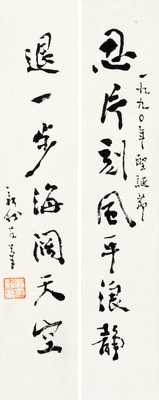 一九九〇年聖誕節
忍片刻風平浪靜
退一步海闊天空